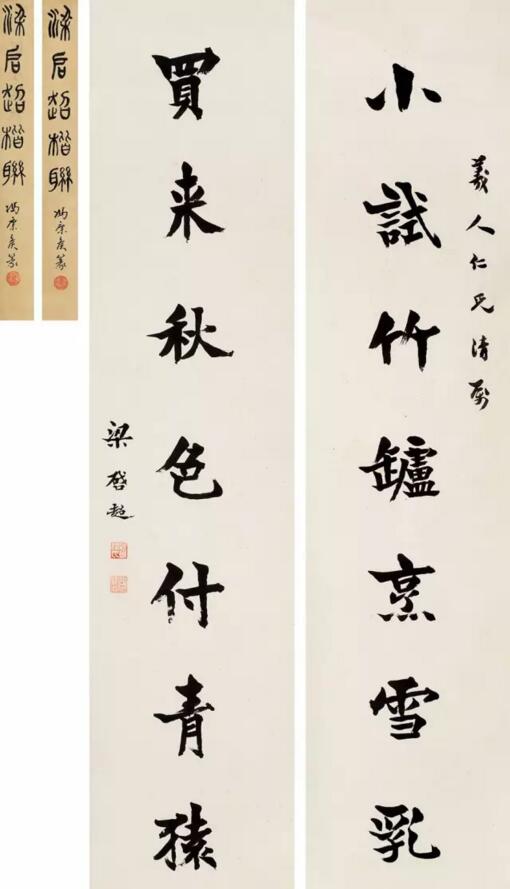 羲人仁兄清属
小試竹罏烹雪乳
買来秋色付青猿
梁啓超
梁启超楷聯
馮康侯篆
梁启超楷聯
馮康侯篆